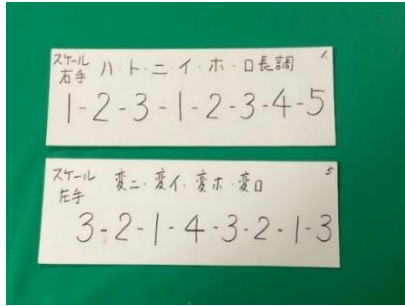 スケール
右手
ハ・ト・ニ・イ・ホ・ロ長調
1.
1-2-3-1-2-3-4-5
スケール
左手
変ニ・変イ・変ホ・変ロ
5
3-2-1-4-3-2-1-3